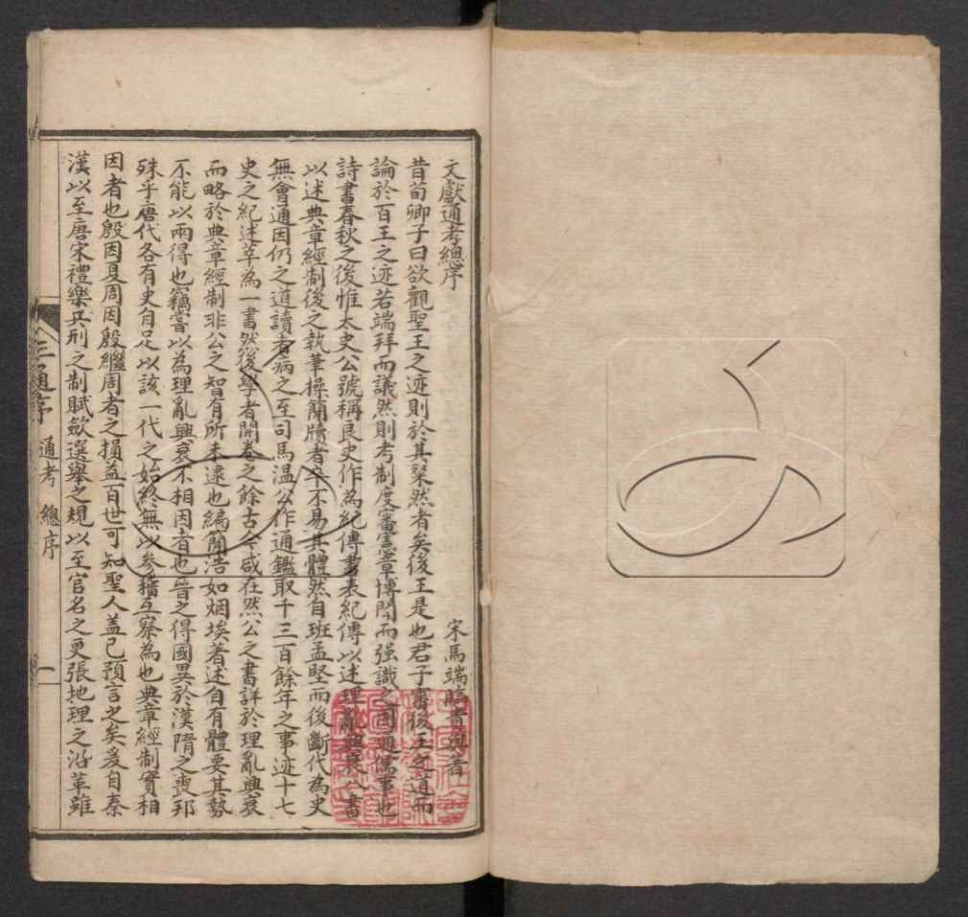 文獻通考總序
宋馬端臨貴與著
昔荀卿子曰欲觀聖王之迹則於其粲然者矣後王是也君子審後王之道而
論於百王之迹若端拜而議然則考制度審憲章博聞而强識之固通儒事也
詩書春秋之後惟太史公號稱良史作為紀傳書表紀傳以述理亂興衰八書
以述典章經制後之執筆操簡牘者卒不易其體然自班孟堅而後斷代為史
無會通因仍之道讀者病之至司馬温公作通鑑取千三百餘年之事迹十七
史之紀述萃為一書然後學者開卷之餘古今咸在然公之書詳於理亂興衰
而略於典章經制非公之智有所未逮也編簡浩如烟埃著述自有體要其勢
不能以兩得也竊嘗以為理亂興衰不相因者也晉之得國異於漢隋之喪邦
殊乎唐代各有史自足以該一代之始終無以參稽互察為也典章經制實相
因者也殷因夏周因殷繼周者之損益百世可知聖人蓋已預言之矣爰自秦
漢以至唐宋禮樂兵刑之制賦斂選舉之規以至官名之更張地理之沿革雖
三通序 通考 總序 一